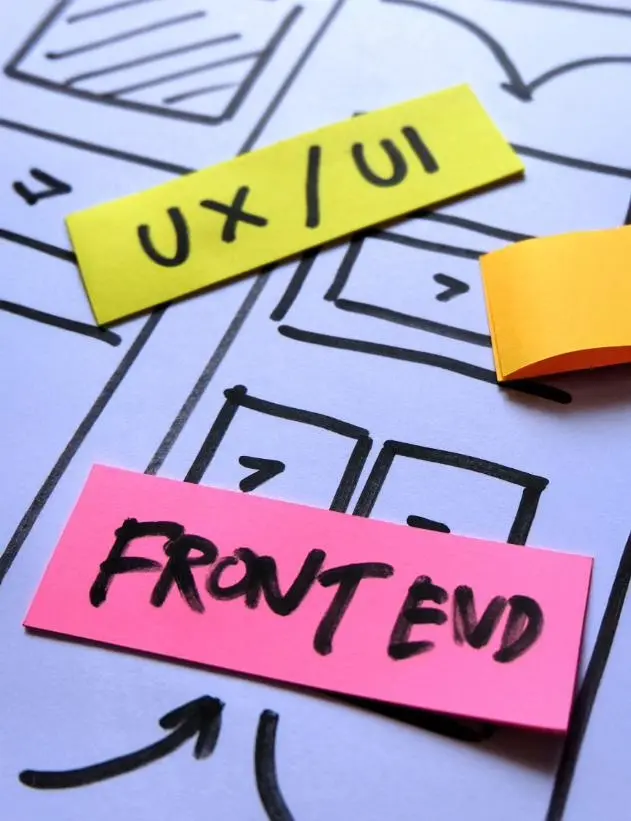 UX / UI
FRONT END